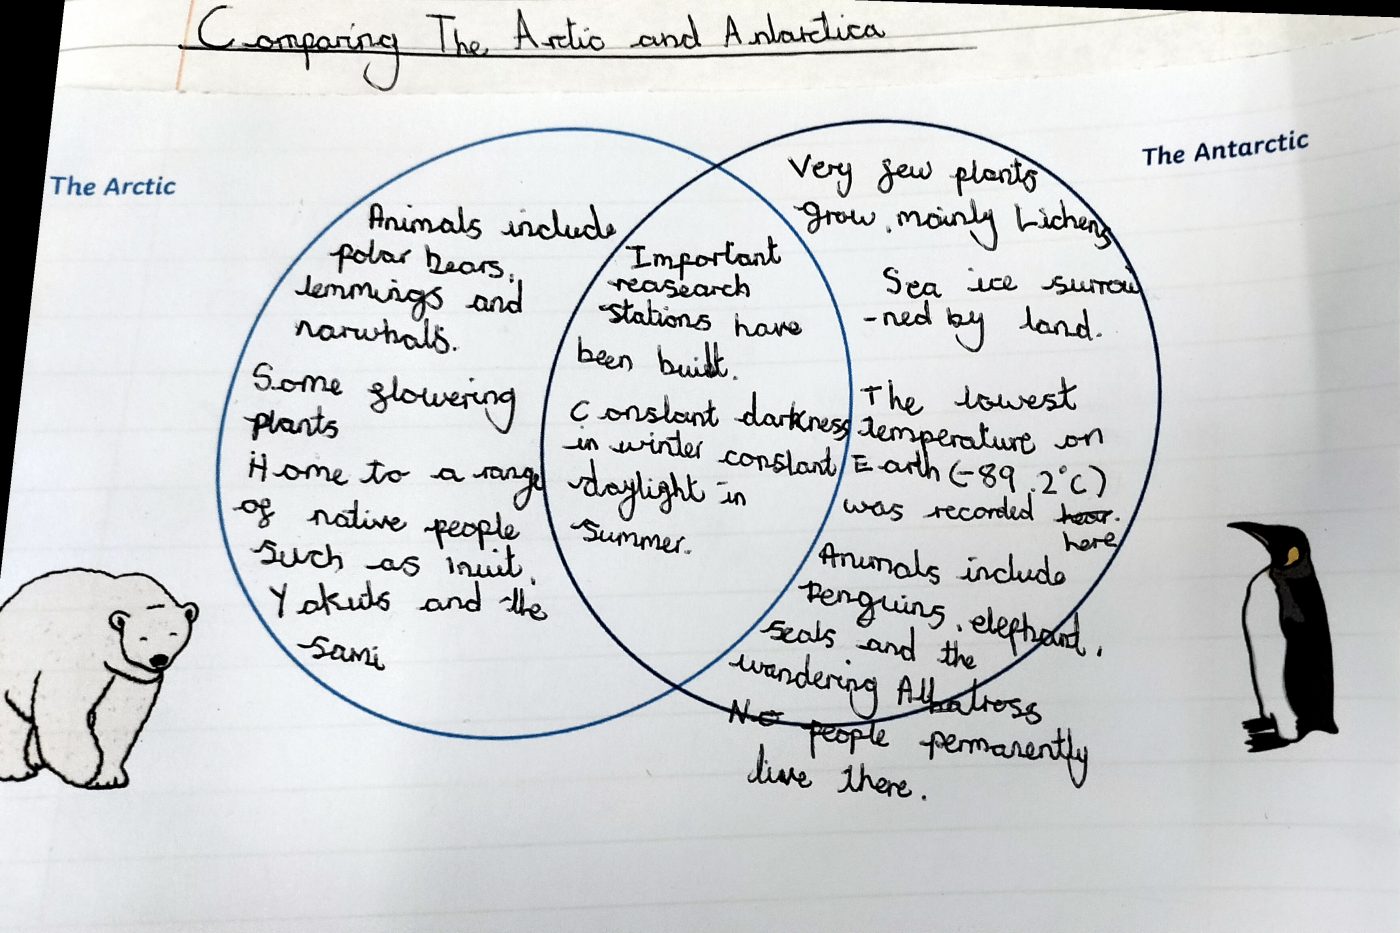 Comparing The Arctic and Antarctica
The Arctic
The Antarctic
Animals include
polar bears,
lemmings and
narwhals.
Some flowering
plants
Home to a range
of native people
such as inuit,
Yakuts and the
Sami
Important
reasearch
stations have
been built.
Constant darkness
in winter constant
daylight in
summer.
Very few plants
grow, mainly Lichens
Sea ice surrou
-ned by land.
The lowest
temperature on
Earth (-89.2°C)
was recorded hear.
here
Animals include
Penguins, elephand,
seals and the
wandering Albatross
No people permanently
live there.